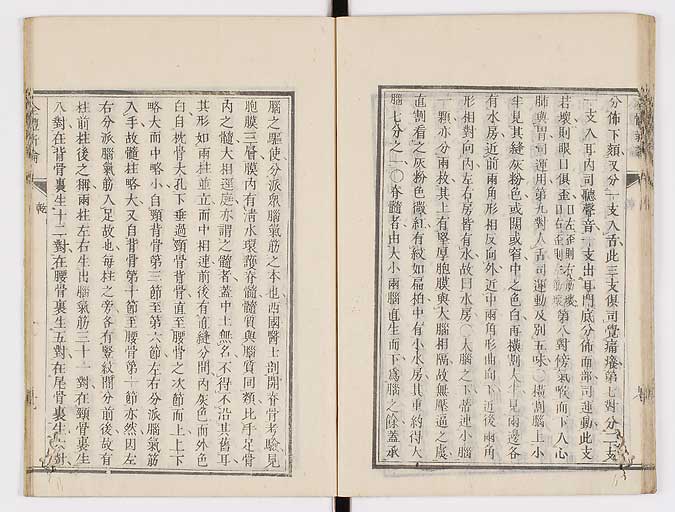 分佈下頦又分一支入舌此三支俱司覺痛癢第七對分二支
一支入耳內司聽聲音一支出耳門底分佈面部司運動此支
若壞則眼口俱歪口左歪則右筋壞口右歪則左筋壞第八對傍氣喉而下入心
肺與胃司運用第九對人舌司運動及別五味〇橫割腦上小
半見其縫灰粉色或闊或窄中之色白再橫割大半見兩邊各
有水房近前兩角形相反向外近中兩角形曲向下近後兩角
形相對向內左右房皆有水故曰水房〇大腦之下蒂連小腦
一顆亦分兩枝其上有堅厚胞膜與大腦相隔故無壓逼之虞
直割看之灰粉色微紅有紋如扁柏中有小水房其重約得大
腦七分之一〇脊髓者由大小兩腦直生而下爲腦之餘蓋承
腦之驅使分派眾腦氣筋之本也西國醫士剖開脊骨考驗見
胞膜三層膜內有清水環護脊髓髓質與腦質同類比手足骨
內之髓大相逕庭亦謂之髓者蓋中土無名不得不沿其舊耳
其形如兩柱並立而中相連前後有直縫分間內灰色而外色
白自枕骨大孔下垂過頸骨背骨直至腰骨之次節而上上下
略大而中略小自頸背骨第三節至第六節左右分派腦氣筋
入手故髓柱略大又自背骨第十節至腰骨第一節亦然因左
右分派腦氣筋入足故也每柱之旁各有豎紋間分前後故有
柱前柱後之稱兩柱左右生出腦氣筋三十一對在頸骨裏生
八對在背骨裏生十二對在腰骨裏生五對在尾骨裏生六對
全體新論
乾